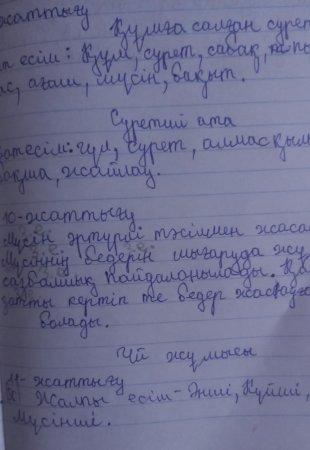 жаттығу
Құмға салған сурет
есім: Құм, сурет, сабақ,
ағаш, мүсін, бақыт.
Суретші ата
затесім: гүл, сурет, алмас, қым
бақша, жайлау.
10-жаттығу
Мүсін әртүрлі тәсілмен жаса
Мүсіннің бедерін шығаруда жұ
саз балшық пайдаланылады. Қа
затты кертіп те бедер жасауға
болады.
Үй жұмысы
11-жаттығу
Жалпы есім - Әнші, Күйші,
Мүсінші.